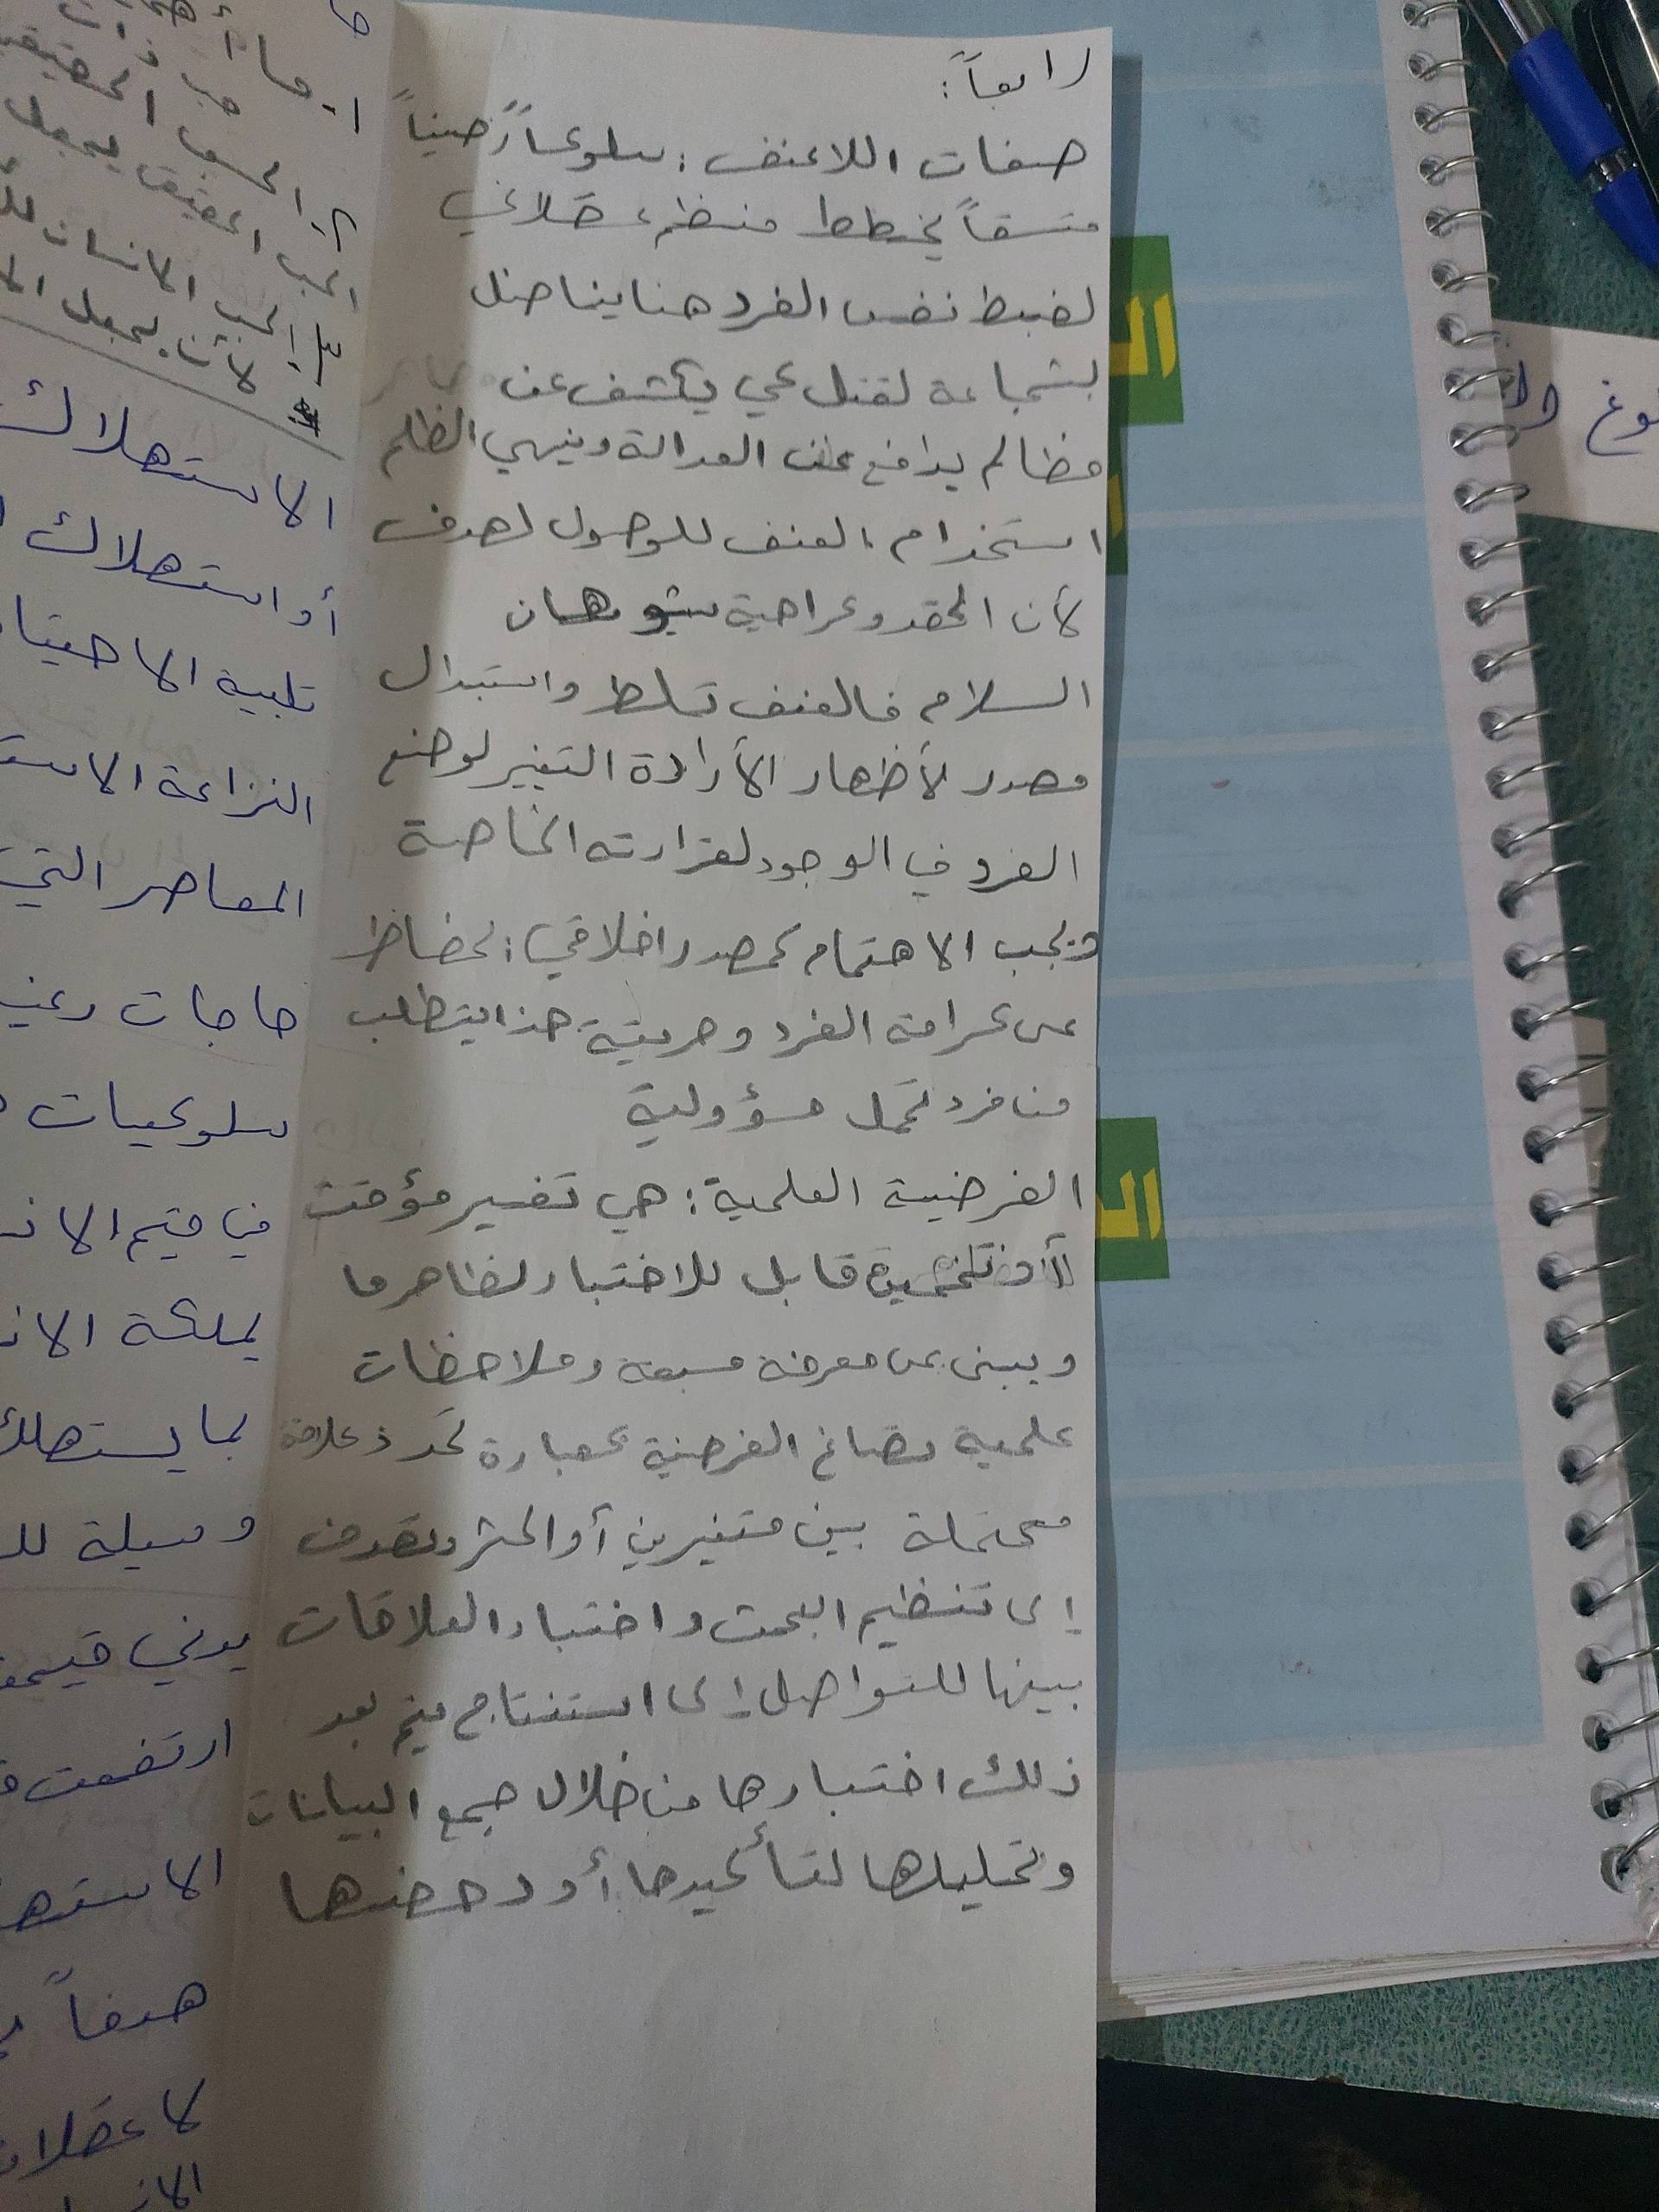 رابعاً:
صفات اللاعنف: سلوكاً رصيناً
متسقاً يخطط منظم عقلاني
لضبط نفس الفرد هنا يناضل
بشجاعة لقتل كي يكشف عن
مظالم يدافع عن العدالة وينهي الظلم
استخدام العنف للوصول لهدف
لأن الحقد وكراهية يشوهان
السلام فالعنف تسلط واستبدال
مصدر لأظهار الأرادة التغير لوضع
الفرد في الوجود لقرارته الخاصة
ويجب الاهتمام كمصدر اخلاقي: لحفاظ
على كرامة الفرد وحريتة هذا يتطلب
منا فرد تحمل مسؤولية
الفرضية العلمية: هي تفسير مؤقت
أو تخمين قابل للاختبار لظاهر ما
ويبنى على معرفة مسبقة وملاحظات
علمية تصاغ الفرضية كعبارة تحدد علاقة
محتملة بين متغيرين أو اكثر وتهدف
إلى تنظيم البحث واختبار العلاقات
بينها للتواصل إلى استنتاج يتم بعد
ذلك اختبارها من خلال جمع البيانات
وتحليلها لتأكيدها أو دحضها
الاستهلاك
أو استهلاك
تلبية الاحتيا
النزاعة الاست
المعاصر التي
حاجات
سلوكيات
في قيم الان
يملكة الان
بما يستهلك
وسيلة لل
ارتفعت
الاسته
هدفاً
لا عقلان
ال
ال